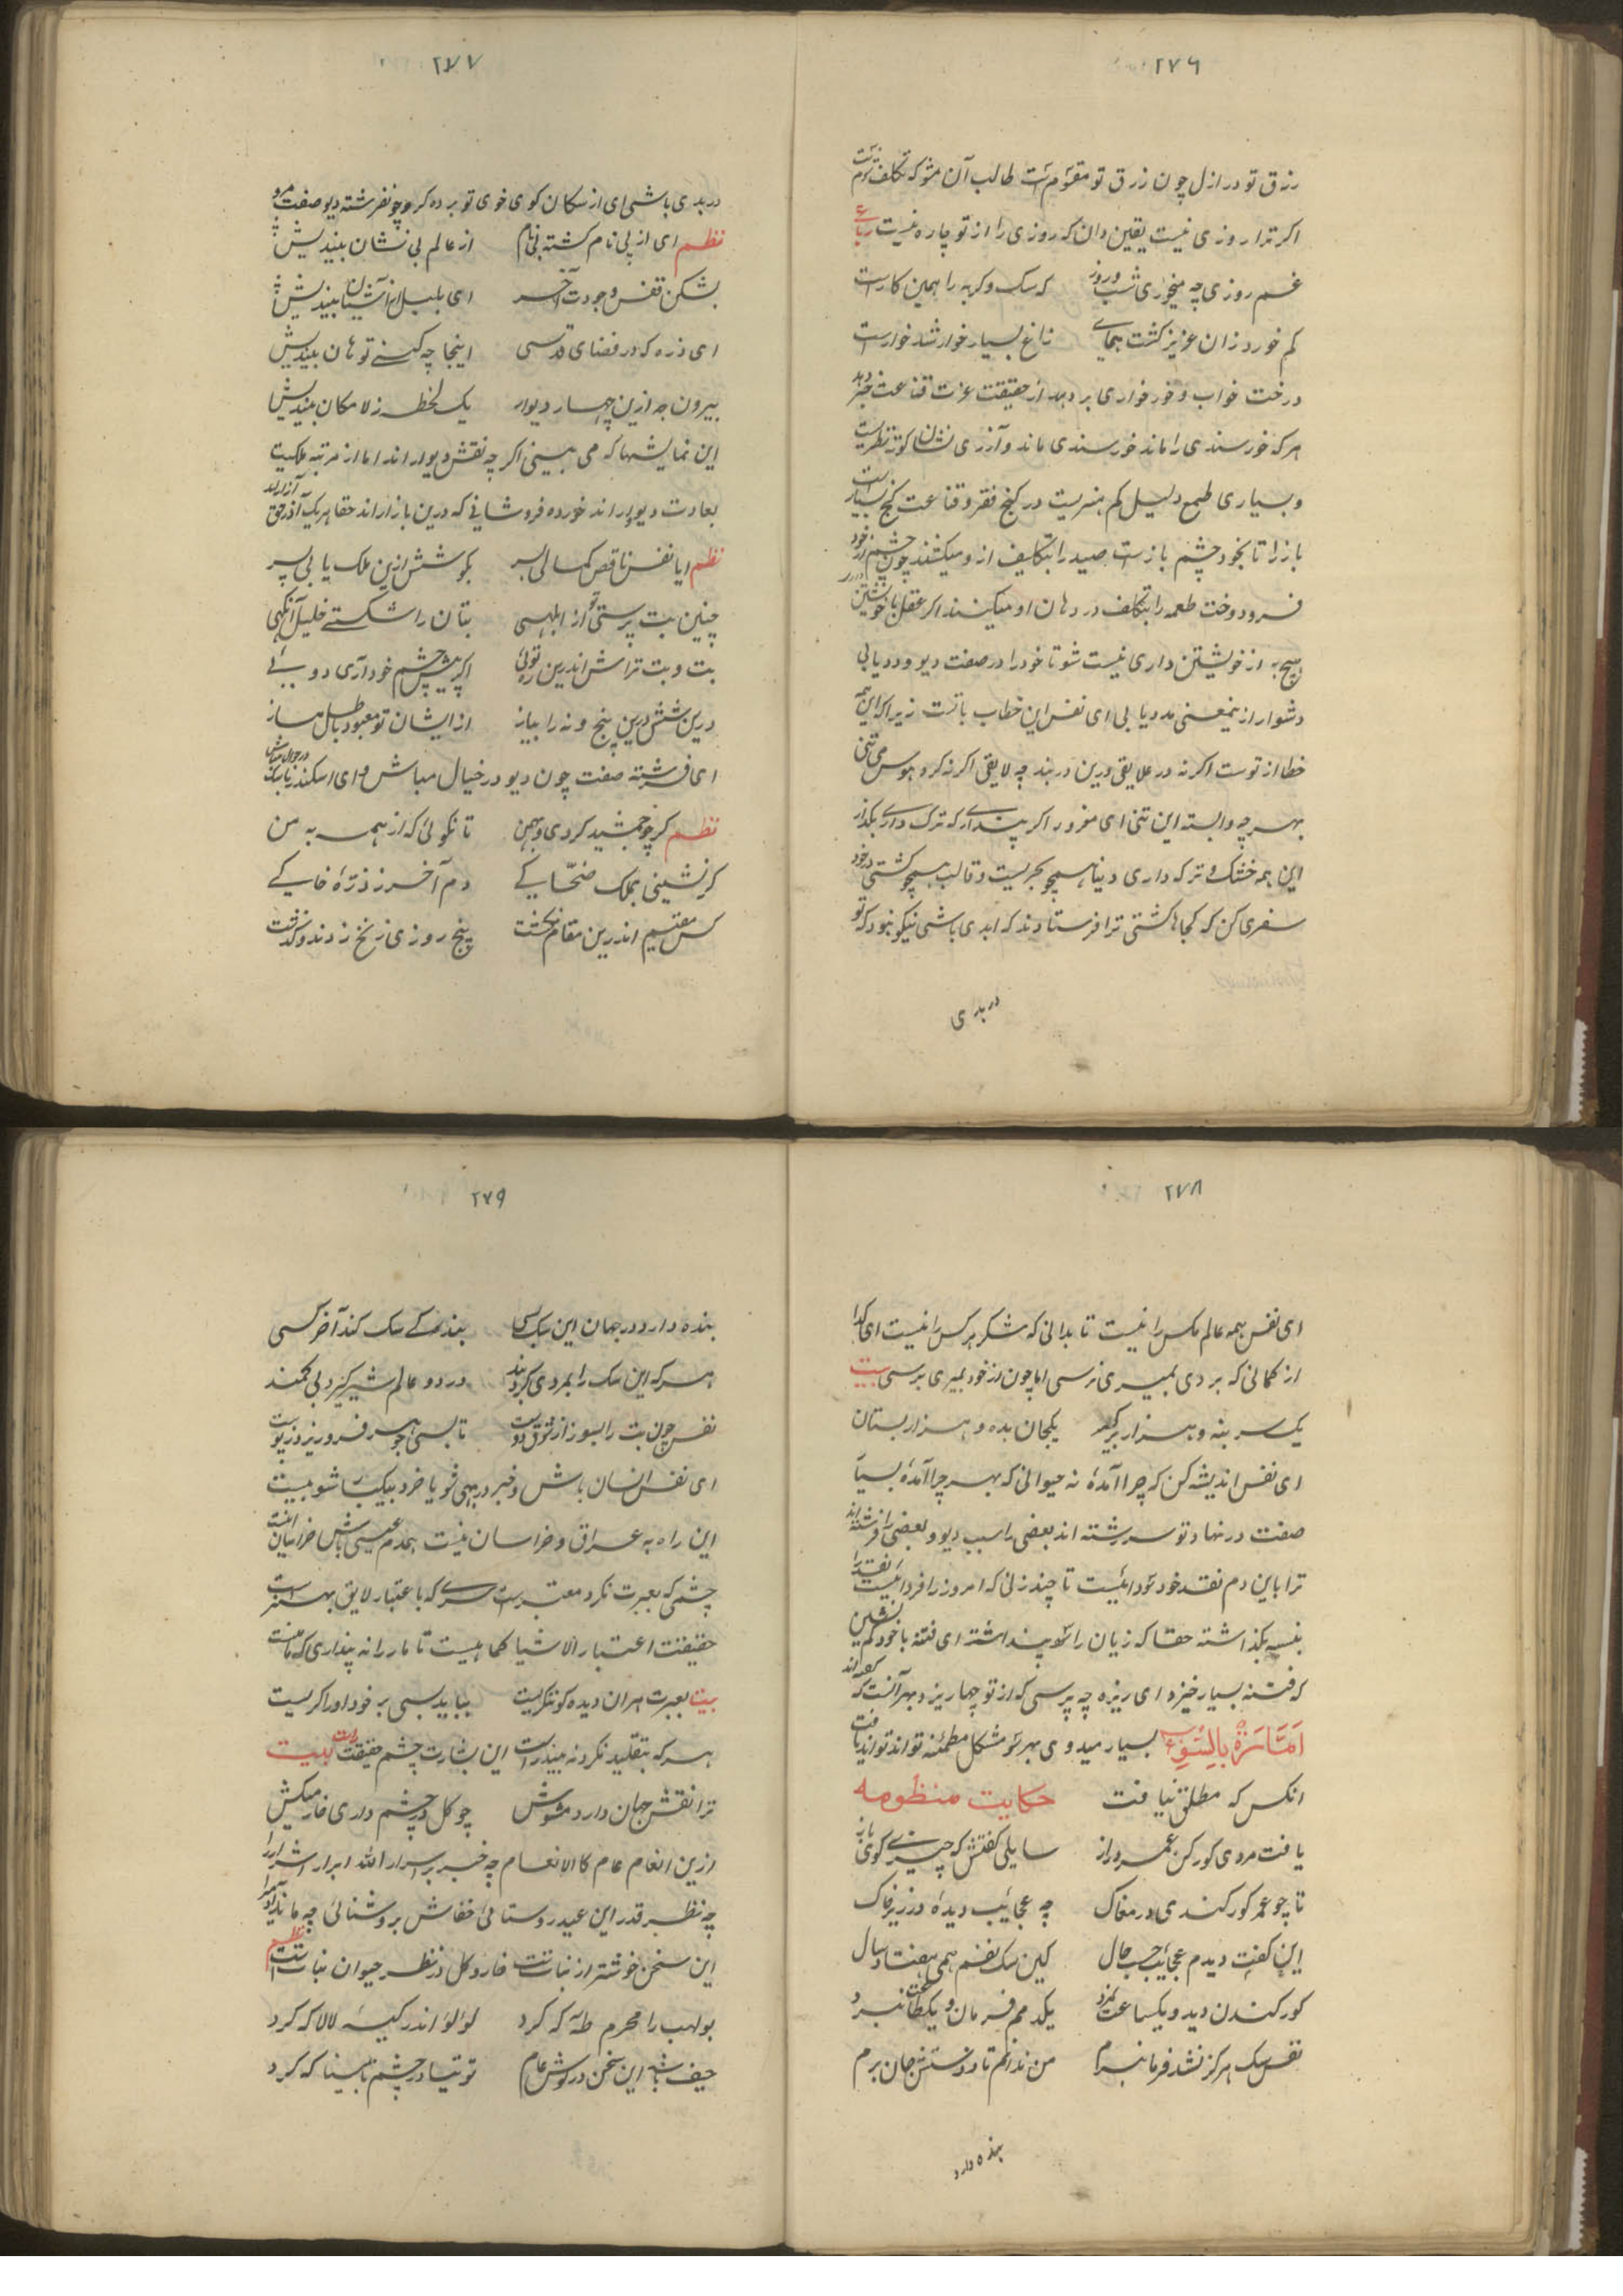 ۲۷۶
رزق تو در ازل چون رزق تو مقسوم است طالب آن مشو که تکلف
اکر ترا روزی نیست یقین دان که روزی را از تو چاره نیست رباعی
غم روزی چه میخوری شب و روز که سک و کربه را همین کار است
کم خورد زان عزیز کشت همای زاغ بسیار خوار شد خوار است
درخت خواب و خور خواری بر دهد از حقیقت عزت قناعت خبر دهد
هر که خورسندی را ماند خورسندی ماند و آزری نشان کوته نظریست
و بسیاری طمع دلیل کم هنریست در کنج فقر و قناعت کنج بسیار است
باز را تا بخود چشم باز است صید را بتکلیف از و میکشند چون چشم از خود
فرو دوخت طعمه را بتکلف در دهان او میکنند اکر عقل با خویشتن
هیچ به از خویشتن داری نیست شو تا خود را در صفت دیو و دد یابی
دشوار ازینمعنی مدد یابی ای نفس این خطاب با تست زیرا که این همه
خطا از توست اکر نه در علایقی درین دربند چه لایقی اکر نه کرد هوس می تنی
بهر چه وابسته این تنی ای مغرور اکر پنداری که ترک داری بکذار
این همه خشک و تر که داری دنیا همچو بحریست و قالب همچو کشتی در خود
سفری کن که کجا کشتی ترا فرستادند که ابدی باشی نیکو نبود که تو
در بدی
۲۷۷
در بدی باشی ای از سکان کوی خوی تو برده کرو چو نفر شته دیو صفت مرو
نظم ای از پی نام کشته بی نام از عالم بی نشان بیندیش
بشکن قفس وجودت آخر ای بلبل از آشیان بیندیش
ای ذره که در فضای قدسی اینجا چه کنی تو هان بیندیش
بیرون جه ازین چهار دیوار یک لحظه ز لا مکان بیندیش
این نمایشها که می بینی اکر چه نقش دیوار اند اما از مرتبه ملکیت
بعادت دیوار اند خورده فروشانی که درین بازار اند حقا هر یک آذر حق آزارند
نظم ایا نفس ناقص کمالی ببر بکوشش ازین ملک یابی بپر
چنین بت پرستی تو از ابلهی بتان را شکستی خلیل آنکهی
بت و بت تراش اندرین ره توئی اکر پیش چشم خود آری دوئی
درین شش درین پنج و نه را بیاز از ایشان تو معبود باطل مساز
ای فرشته صفت چون دیو در خیال مباش و ای اسکندر
نظم کر چو جمشید کردی و بهمن تا نکوئی که از همه به من
کر نشینی بملک ضحّاکی دم آخر ز ذرّه خاکی
کس مقیم اندرین مقام نکشت پنج روزی زنخ زدند و کذشت
۲۷۸
ای نفس همه عالم کس را نیست تا بدانی که شکر هر کس را نیست ای کدا
از کمانی که بردی بمیری نرسی اما چون از خود بمیری برسی بیت
یک سر بنه و هزار بر کیر یکجان بده و هزار بستان
ای نفس اندیشه کن که چرا آمدهٔ نه حیوانی که بهر چرا آمدهٔ بسیار
صفت در نهاد تو سرشته اند بعضی را سبب دیو و بعضی را فرشته اند
ترا باین دم نقد خود سودا نیست تا چند زنی که امروز را فردا نیست نقد را
بنسیه بکذاشته حقا که زیان را سود پنداشته ای فتنه با خود کم نشین
که فتنه بسیار خیزد ای ریزه چه پرسی که از تو چها ریزد بهر آنست که گفته اند
اَمَّارَةٌ بِالسُّوءِ بسیار میدوی بهر سو مشکل مطمئنه تواند تواند یافت
انکس که مطلق نیافت حکایت منظومه
یافت مردی کورکن عمر دراز سایلی کفتش که چیزی کوی باز
تا چو عمر کور کندی در مغاک چه عجایب دیدهٔ در زیر خاک
این کفت دیدم عجایب حسب حال کین سک نفسم همی هفتاد سال
کور کندن دید و یکساعت نمرد یکدمم فرمان و یکطاعت نبرد
نفس سک هرکز نشد فرمانبرم من ندانم تا ز دستش جان برم
بنده دارد
۲۷۹
بنده دارد در جهان این سک بسی بندکی سک کند آخر کسی
هر که این سک را بمردی کرد بند در دو عالم شیر کیرد بی کمند
نفس چون بت را بسوز از شوق دوست تا بسی جوهر فرو ریزد ز پوست
ای نفس انسان باش و خبر در بهی شو یا خرد بیکبار شو بیت
این راه به عراق و خراسان نیست همدم عیسی باش خر اینان
چشمی که بعبرت نکرد معتبر است سری که با عتبار لایق بهتر است
حقیقت اعتبار الاشیا کما هیست تا مار را نه پنداری که ماهیست
بیت بعبرت هر ان دیده کو ننکریست بباید بسی بر خود او را کریست
هر که بتقلید نکرد نه بیندر است این بشارت چشم حقیقت راست بیت
ترا نقش جهان دارد مشوش چو کل در چشم داری خار میکش
ازین انعام عام کالانعام چه خبر بر اسرار الله ابرار اشرار را
چه نظر قدر این عید روستائی خفاش بروشنائی چه ماند
این سخن خوشتر از نبات است خار و کل در نظر حیوان نبات است نظم
بولهب را محرم طٓه که کرد لؤلؤ اندر کیسهٔ لالا که کرد
حیف باشد این سخن در کوش عام توتیا در چشم نابینا که کرد